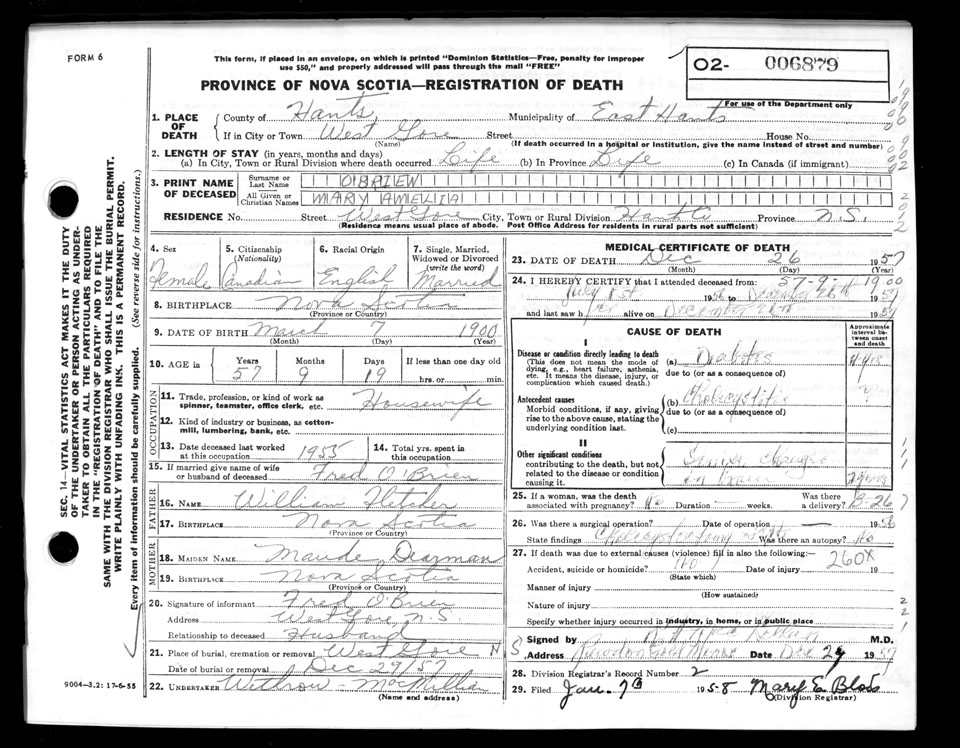 FORM 6
This form, if placed in an envelope, on which is printed "Dominion Statistics—Free, penalty for improper
use $50," and properly addressed will pass through the mail "FREE"
O2- 006879
For use of the Department only
PROVINCE OF NOVA SCOTIA—REGISTRATION OF DEATH
1. PLACE OF DEATH
County of Hants, Municipality of East Hants
If in City or Town West Gore Street House No.
(Name) (If death occurred in a hospital or institution, give the name instead of street and number)
2. LENGTH OF STAY (in years, months and days)
(a) In City, Town or Rural Division where death occurred Life (b) In Province Life (c) In Canada (if immigrant)
3. PRINT NAME OF DECEASED
Surname or Last Name OBRIEN
All Given or Christian Names MARY AMELIA
RESIDENCE No. Street West Gore City, Town or Rural Division Hants Co Province N.S.
(Residence means usual place of abode. Post Office Address for residents in rural parts not sufficient)
SEC. 14—VITAL STATISTICS ACT MAKES IT THE DUTY
OF THE UNDERTAKER OR PERSON ACTING AS UNDER-
TAKER "TO OBTAIN ALL THE PARTICULARS REQUIRED
IN THE "REGISTRATION OF DEATH" AND TO FILE THE
SAME WITH THE DIVISION REGISTRAR WHO SHALL ISSUE THE BURIAL PERMIT.
WRITE PLAINLY WITH UNFADING INK. THIS IS A PERMANENT RECORD.
Every item of information should be carefully supplied. (See reverse side for instructions.)
4. Sex Female
5. Citizenship (Nationality) Canadian
6. Racial Origin English
7. Single, Married, Widowed or Divorced (write the word) Married
8. BIRTHPLACE Nova Scotia
(Province or Country)
9. DATE OF BIRTH March 7 1900
(Month) (Day) (Year)
10. AGE in Years 57 Months 9 Days 19 If less than one day old
hrs. or min.
OCCUPATION
11. Trade, profession, or kind of work as
spinner, teamster, office clerk, etc. Housewife
12. Kind of industry or business, as cotton-
mill, lumbering, bank, etc.
13. Date deceased last worked at this occupation 1955
14. Total yrs. spent in this occupation
15. If married give name of wife or husband of deceased Fred O'Brien
FATHER
16. NAME William Fletcher
17. BIRTHPLACE Nova Scotia
(Province or Country)
MOTHER
18. MAIDEN NAME Maude Dearman
19. BIRTHPLACE Nova Scotia
(Province or Country)
20. Signature of informant Fred O'Brien
Address West Gore, N.S.
Relationship to deceased Husband
21. Place of burial, cremation or removal West Gore N S
Date of burial or removal Dec 29/57
22. UNDERTAKER Withrow - MacMillan
(Name and address)
9004—3.2: 17-6-55
MEDICAL CERTIFICATE OF DEATH
23. DATE OF DEATH Dec 26 1957
(Month) (Day) (Year)
57-9-19 00
24. I HEREBY CERTIFY that I attended deceased from:
July 1st 1956 to December 26th 1957
and last saw her alive on December 1957
CAUSE OF DEATH
Approximate interval between onset and death
I
Disease or condition directly leading to death
(This does not mean the mode of
dying, e.g., heart failure, asthenia,
etc. It means the disease, injury, or
complication which caused death.)
(a) Diabetes
due to (or as a consequence of)
Antecedent causes
Morbid conditions, if any, giving
rise to the above cause, stating the
underlying condition last.
(b) Cholecystitis ?
due to (or as a consequence of)
(c)
II
Other significant conditions
contributing to the death, but not
related to the disease or condition
causing it.
Senile changes
in brain
25. If a woman, was the death associated with pregnancy? No Duration weeks. Was there a delivery?
26. Was there a surgical operation? Date of operation — 1956
State findings Was there an autopsy? No
27. If death was due to external causes (violence) fill in also the following:—
260X
Accident, suicide or homicide? No Date of injury 19
(State which)
Manner of injury
(How sustained)
Nature of injury
Specify whether injury occurred in industry, in home, or in public place
Signed by M.D.
Address Gold Mines Date Dec 29 1957
28. Division Registrar's Record Number 2
29. Filed Jan. 7th 1958 Mary E. Blois
(Division Registrar)